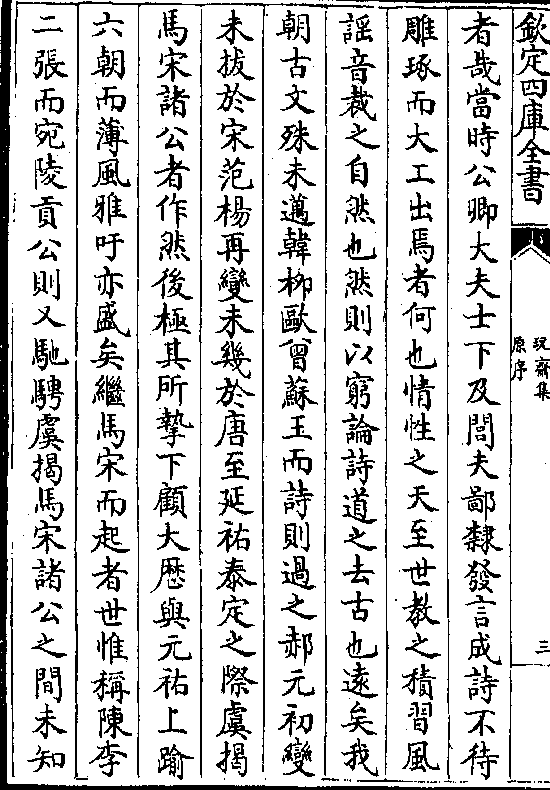 欽定四庫全書
玩齋集
原序
三
者哉當時公卿大夫士下及閭夫鄙隸發言成詩不待
雕琢而大工出焉者何也情性之天至世教之積習風
謡音裁之自然也然則以窮論詩道之去古也遠矣我
朝古文殊未邁韓柳歐曾蘇王而詩則過之郝元初變
未拔於宋范楊再變未幾於唐至延祐泰定之際虞揭
馬宋諸公者作然後極其所摯下顧大歴與元祐上踰
六朝而薄風雅吁亦盛矣繼馬宋而起者世惟稱陳李
二張而宛陵貢公則又馳騁虞揭馬宋諸公之間未知